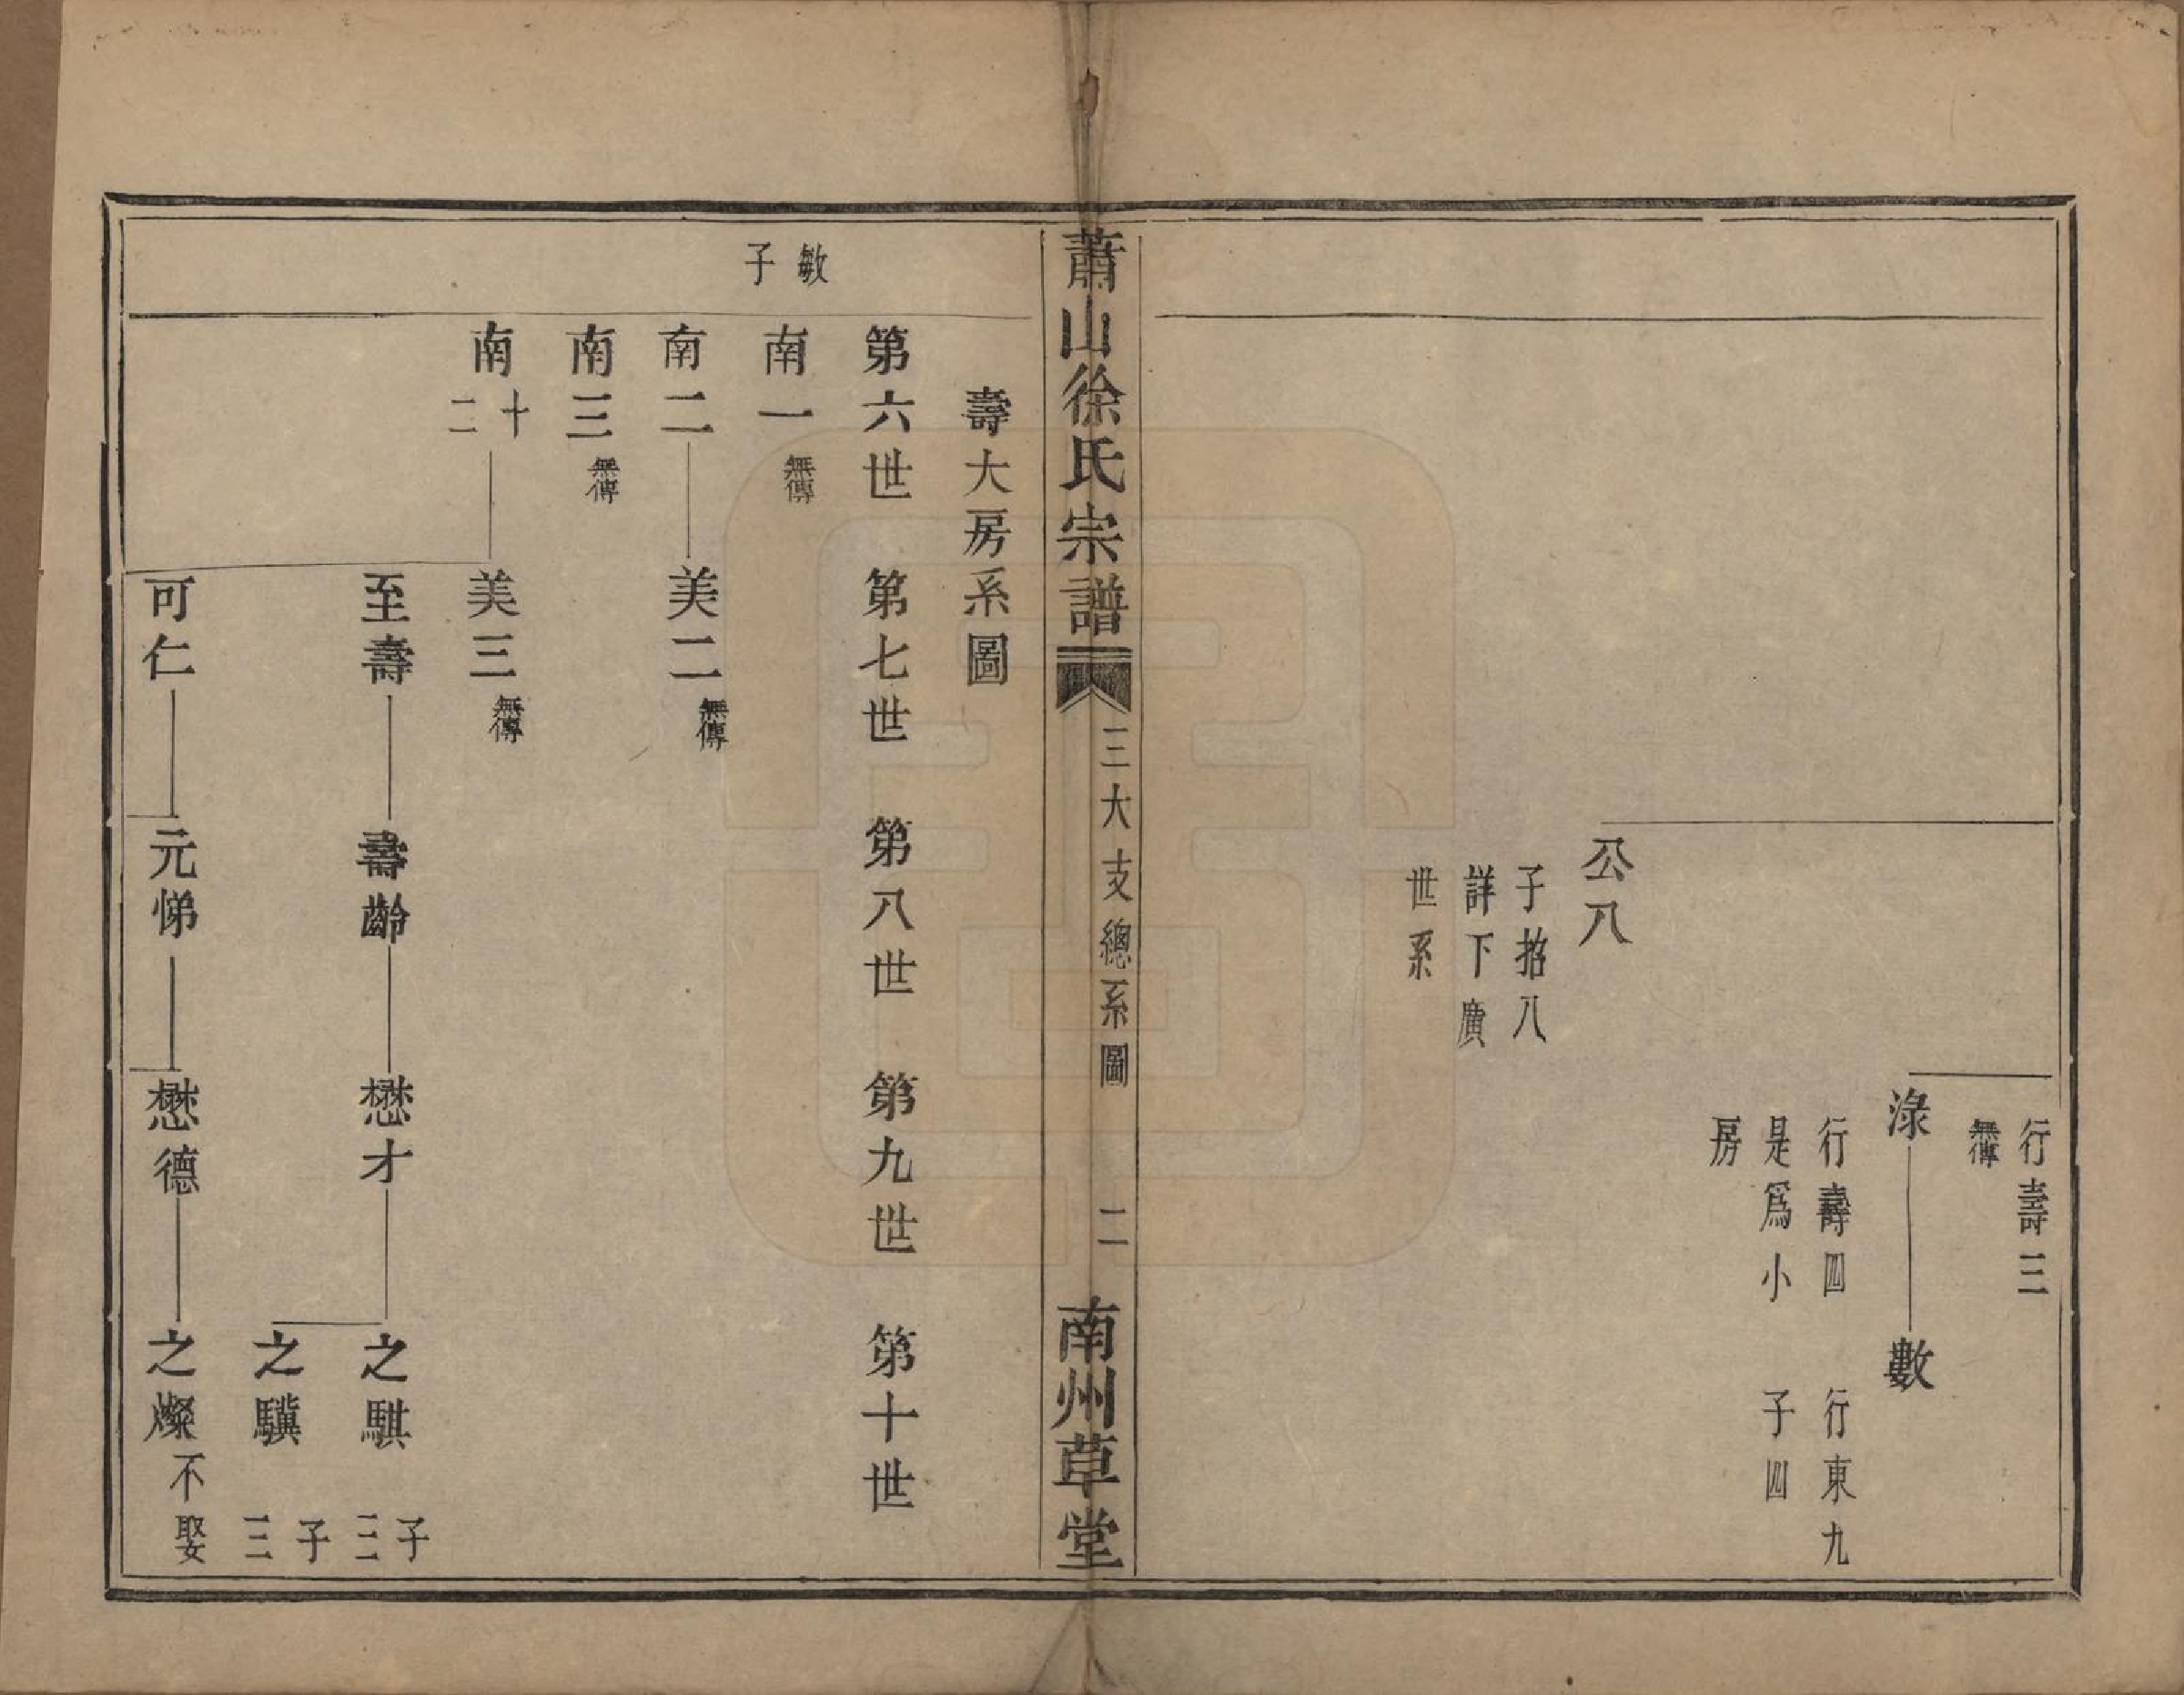 行壽三
無傳
淥
數
行壽四
是爲小
房
行東九
子四
公八
子招八
詳下廣
世系
蕭山徐氏宗譜
三大支總系圖
二
南州草堂
壽大房系圖
第六世 第七世 第八世 第九世 第十世
敏
子
南一 無傳
南二 美二 無傳
南三 無傳
南十二 美三 無傳
至壽 壽齡 懋才 之騏 子三
之驥 子三
可仁 元悌 懋德 之燦 不娶